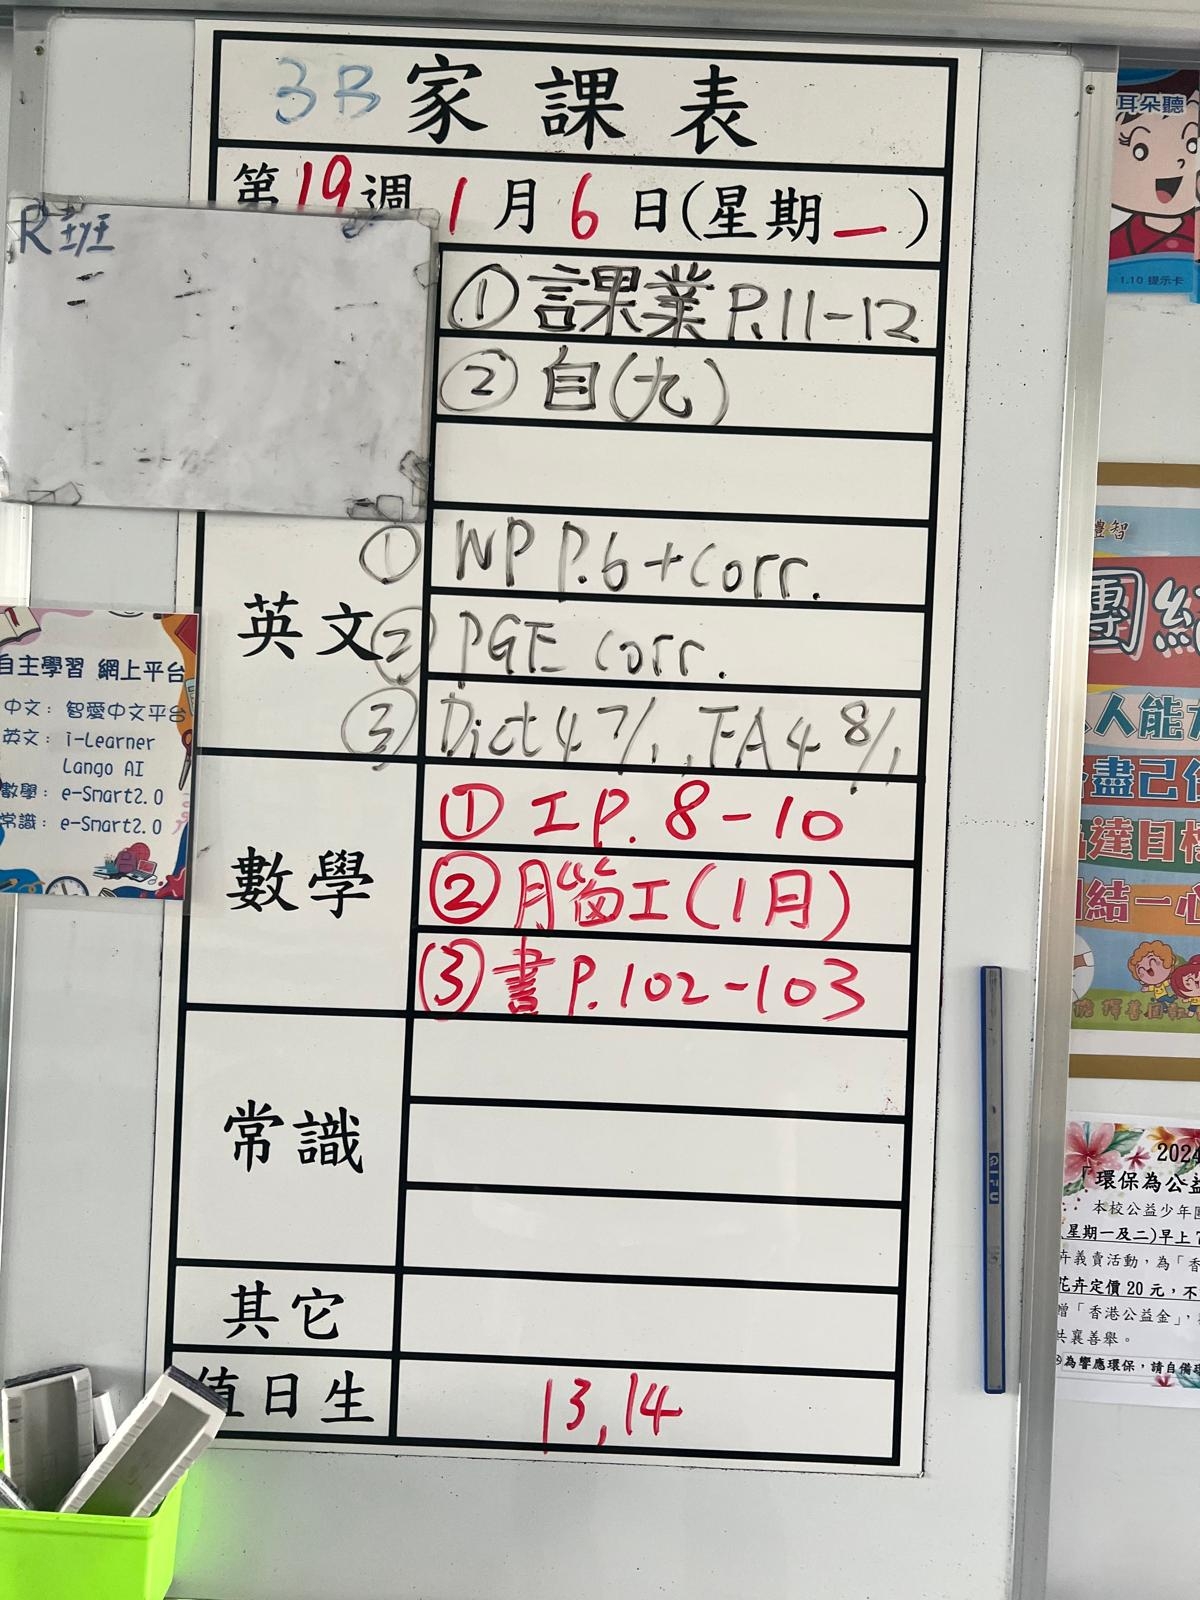 3B 家課表
第19週 1月6日(星期一)
R班
① 課業 P.11-12
② 自(九)
英文
① WP P.6 + Corr.
② PGE Corr.
③ Dict 4 7/1, FA4 8/1
數學
① 工 P. 8-10
② 腦工(1月)
③ 書 P.102-103
常識
其它
值日生
13,14
自主學習 網上平台
中文: 智愛中文平台
英文: i-Learner
Lango AI
數學: e-Smart2.0
常識: e-Smart2.0
耳朵聽
1.10 提示卡
禮智
團結
人人能
盡己
達目標
團結一心
GIFU
2024
「環保為公益
本校公益少年團
(星期一及二)早上7
卉義賣活動,為「香
花卉定價 20 元,不
贈「香港公益金」,
共襄善舉。
為響應環保,請自備